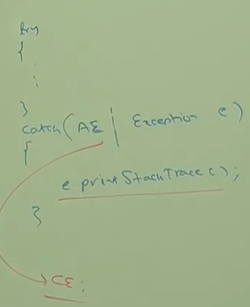 try
{
:
}
catch(AE | Exception e)
{
e.printStackTrace();
}
CE: